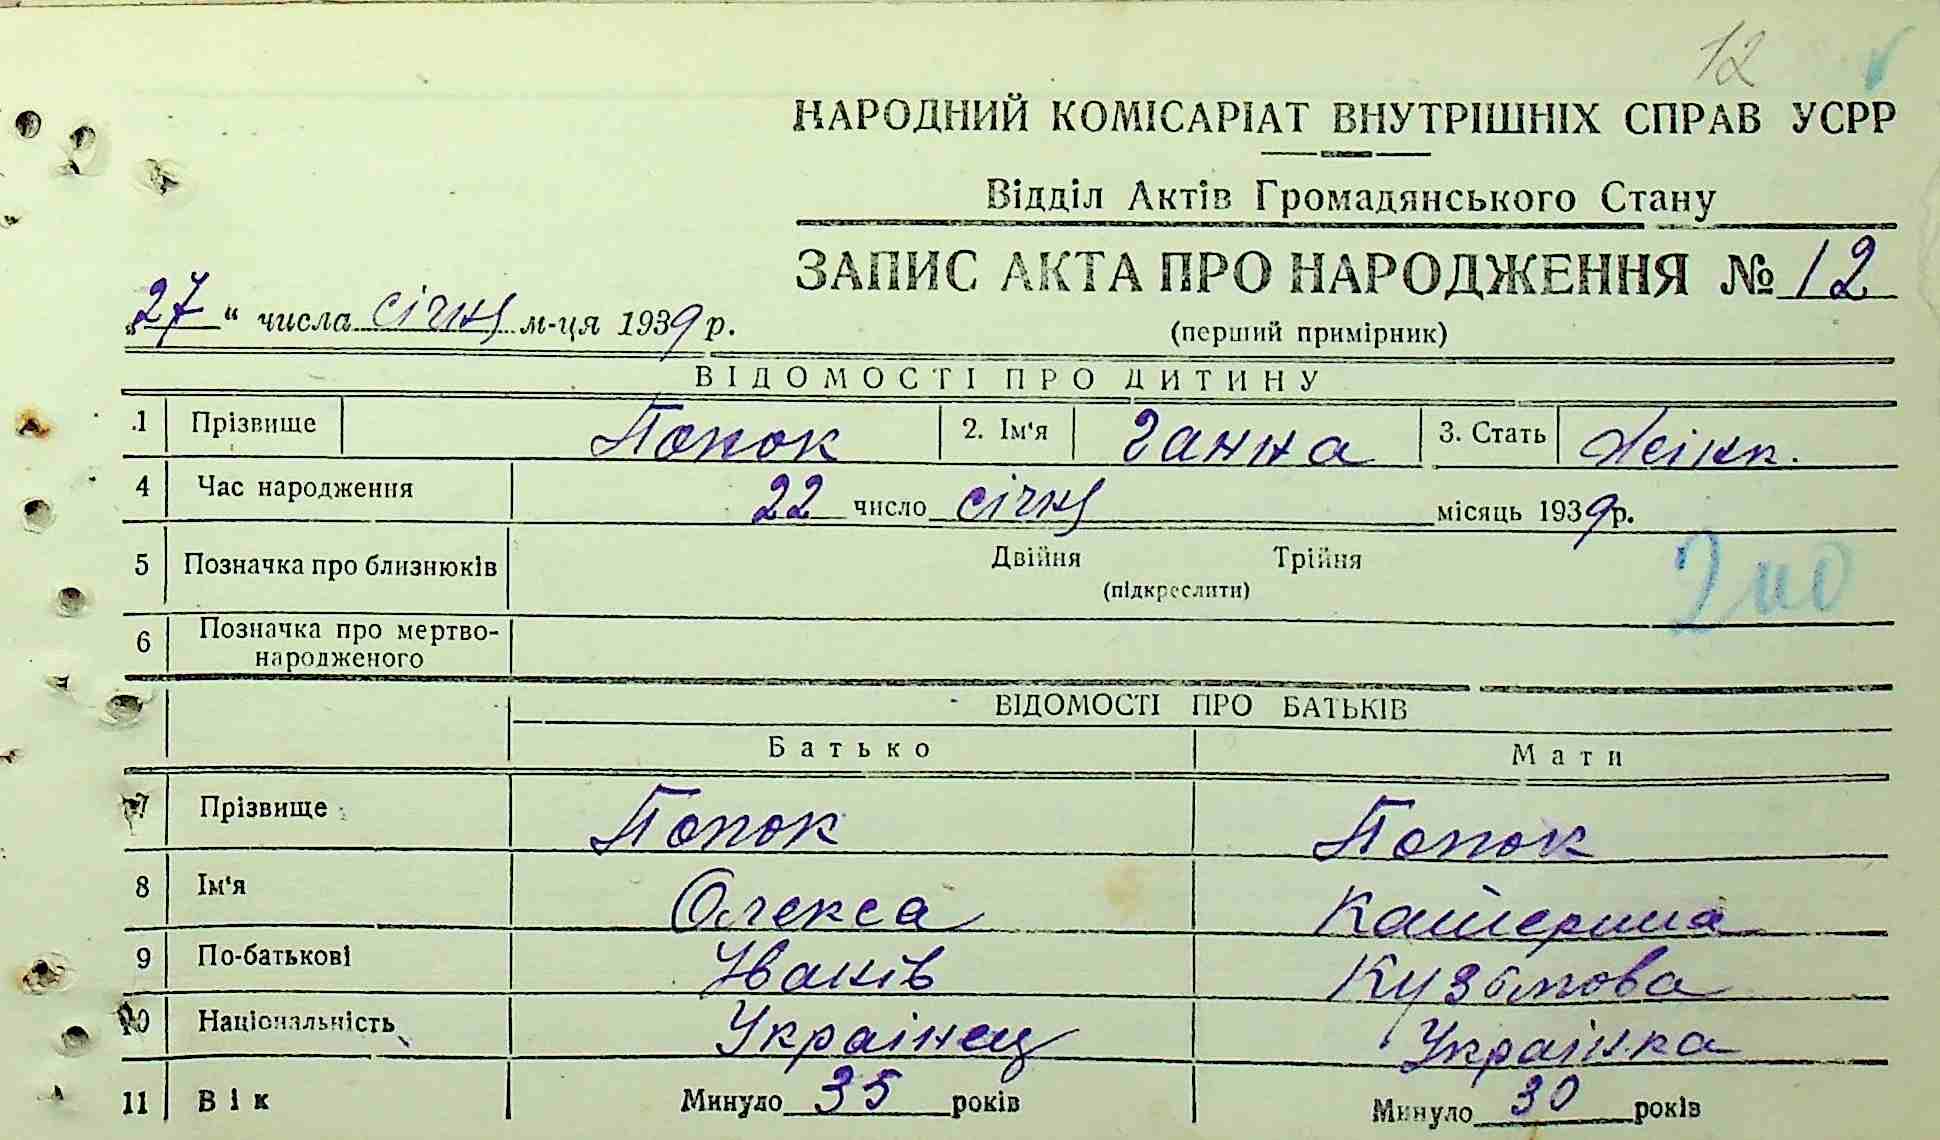 12
НАРОДНИЙ КОМІСАРІАТ ВНУТРІШНІХ СПРАВ УСРР
Відділ Актів Громадянського Стану
ЗАПИС АКТА ПРО НАРОДЖЕННЯ № 12
„27“ числа січня м-ця 1939 р.
(перший примірник)
ВІДОМОСТІ ПРО ДИТИНУ
1 Прізвище Попок 2. Ім‘я Ганна 3. Стать
4 Час народження 22 число січня місяць 1939 р.
5 Позначка про близнюків Двійня Трійня
(підкреслити)
6 Позначка про мертво-
народженого
ВІДОМОСТІ ПРО БАТЬКІВ
Батько Мати
7 Прізвище Попок Попок
8 Ім‘я Олекса Катерина
9 По-батькові Іванів Кузьмова
10 Національність Українец Українка
11 Вік Минуло 35 років Минуло 30 років